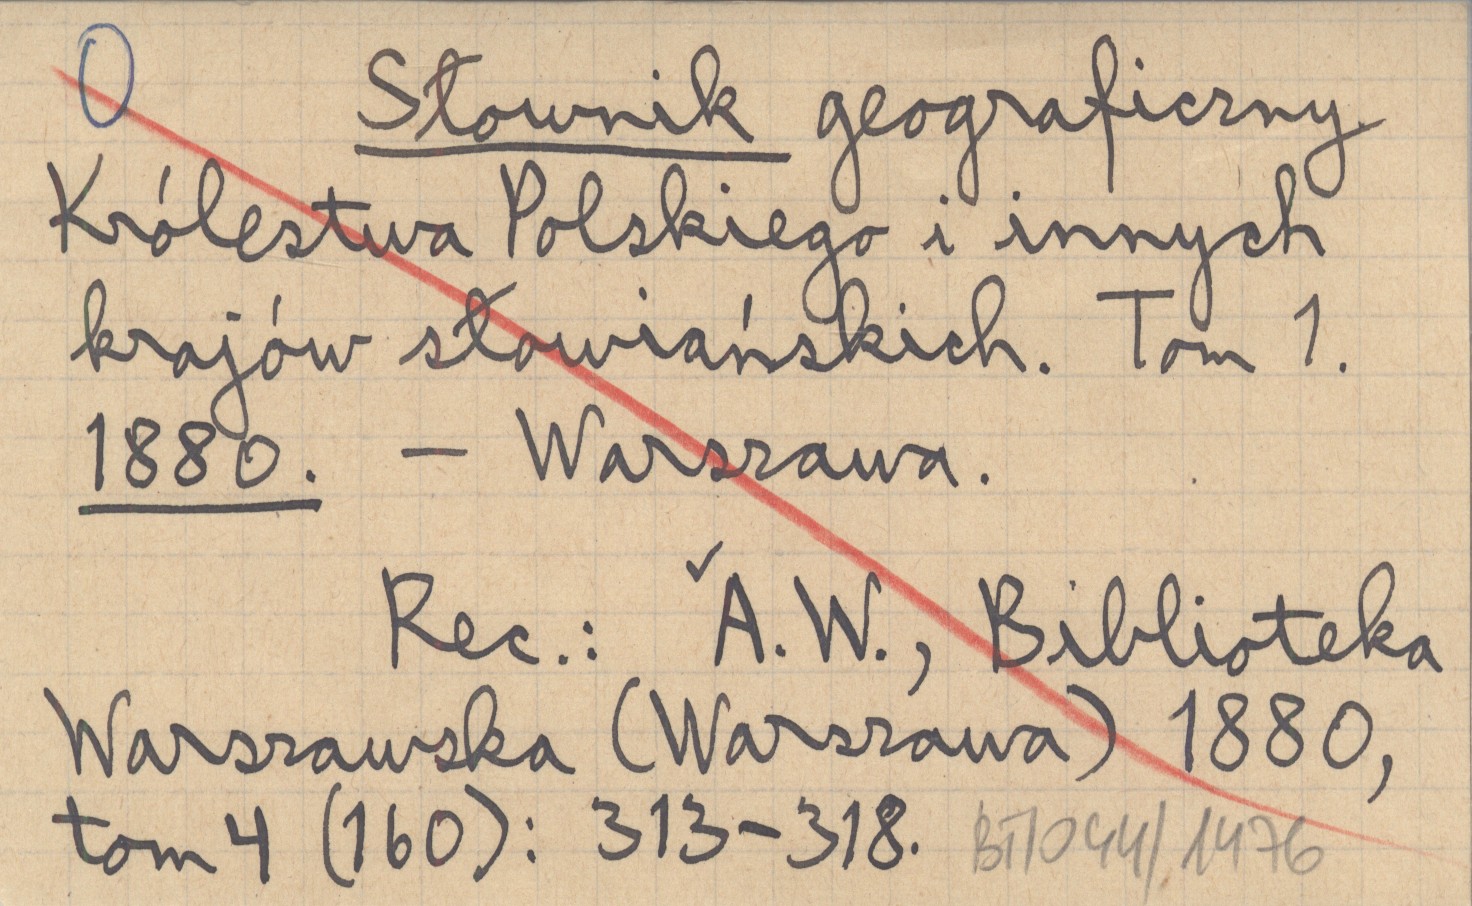 O Słownik geograficzny
Królestwa Polskiego i innych
krajów słowiańskich. Tom 1.
1880. – Warszawa.
Rec.: A.W., Biblioteka
Warszawska (Warszawa) 1880,
tom 4 (160): 313–318.